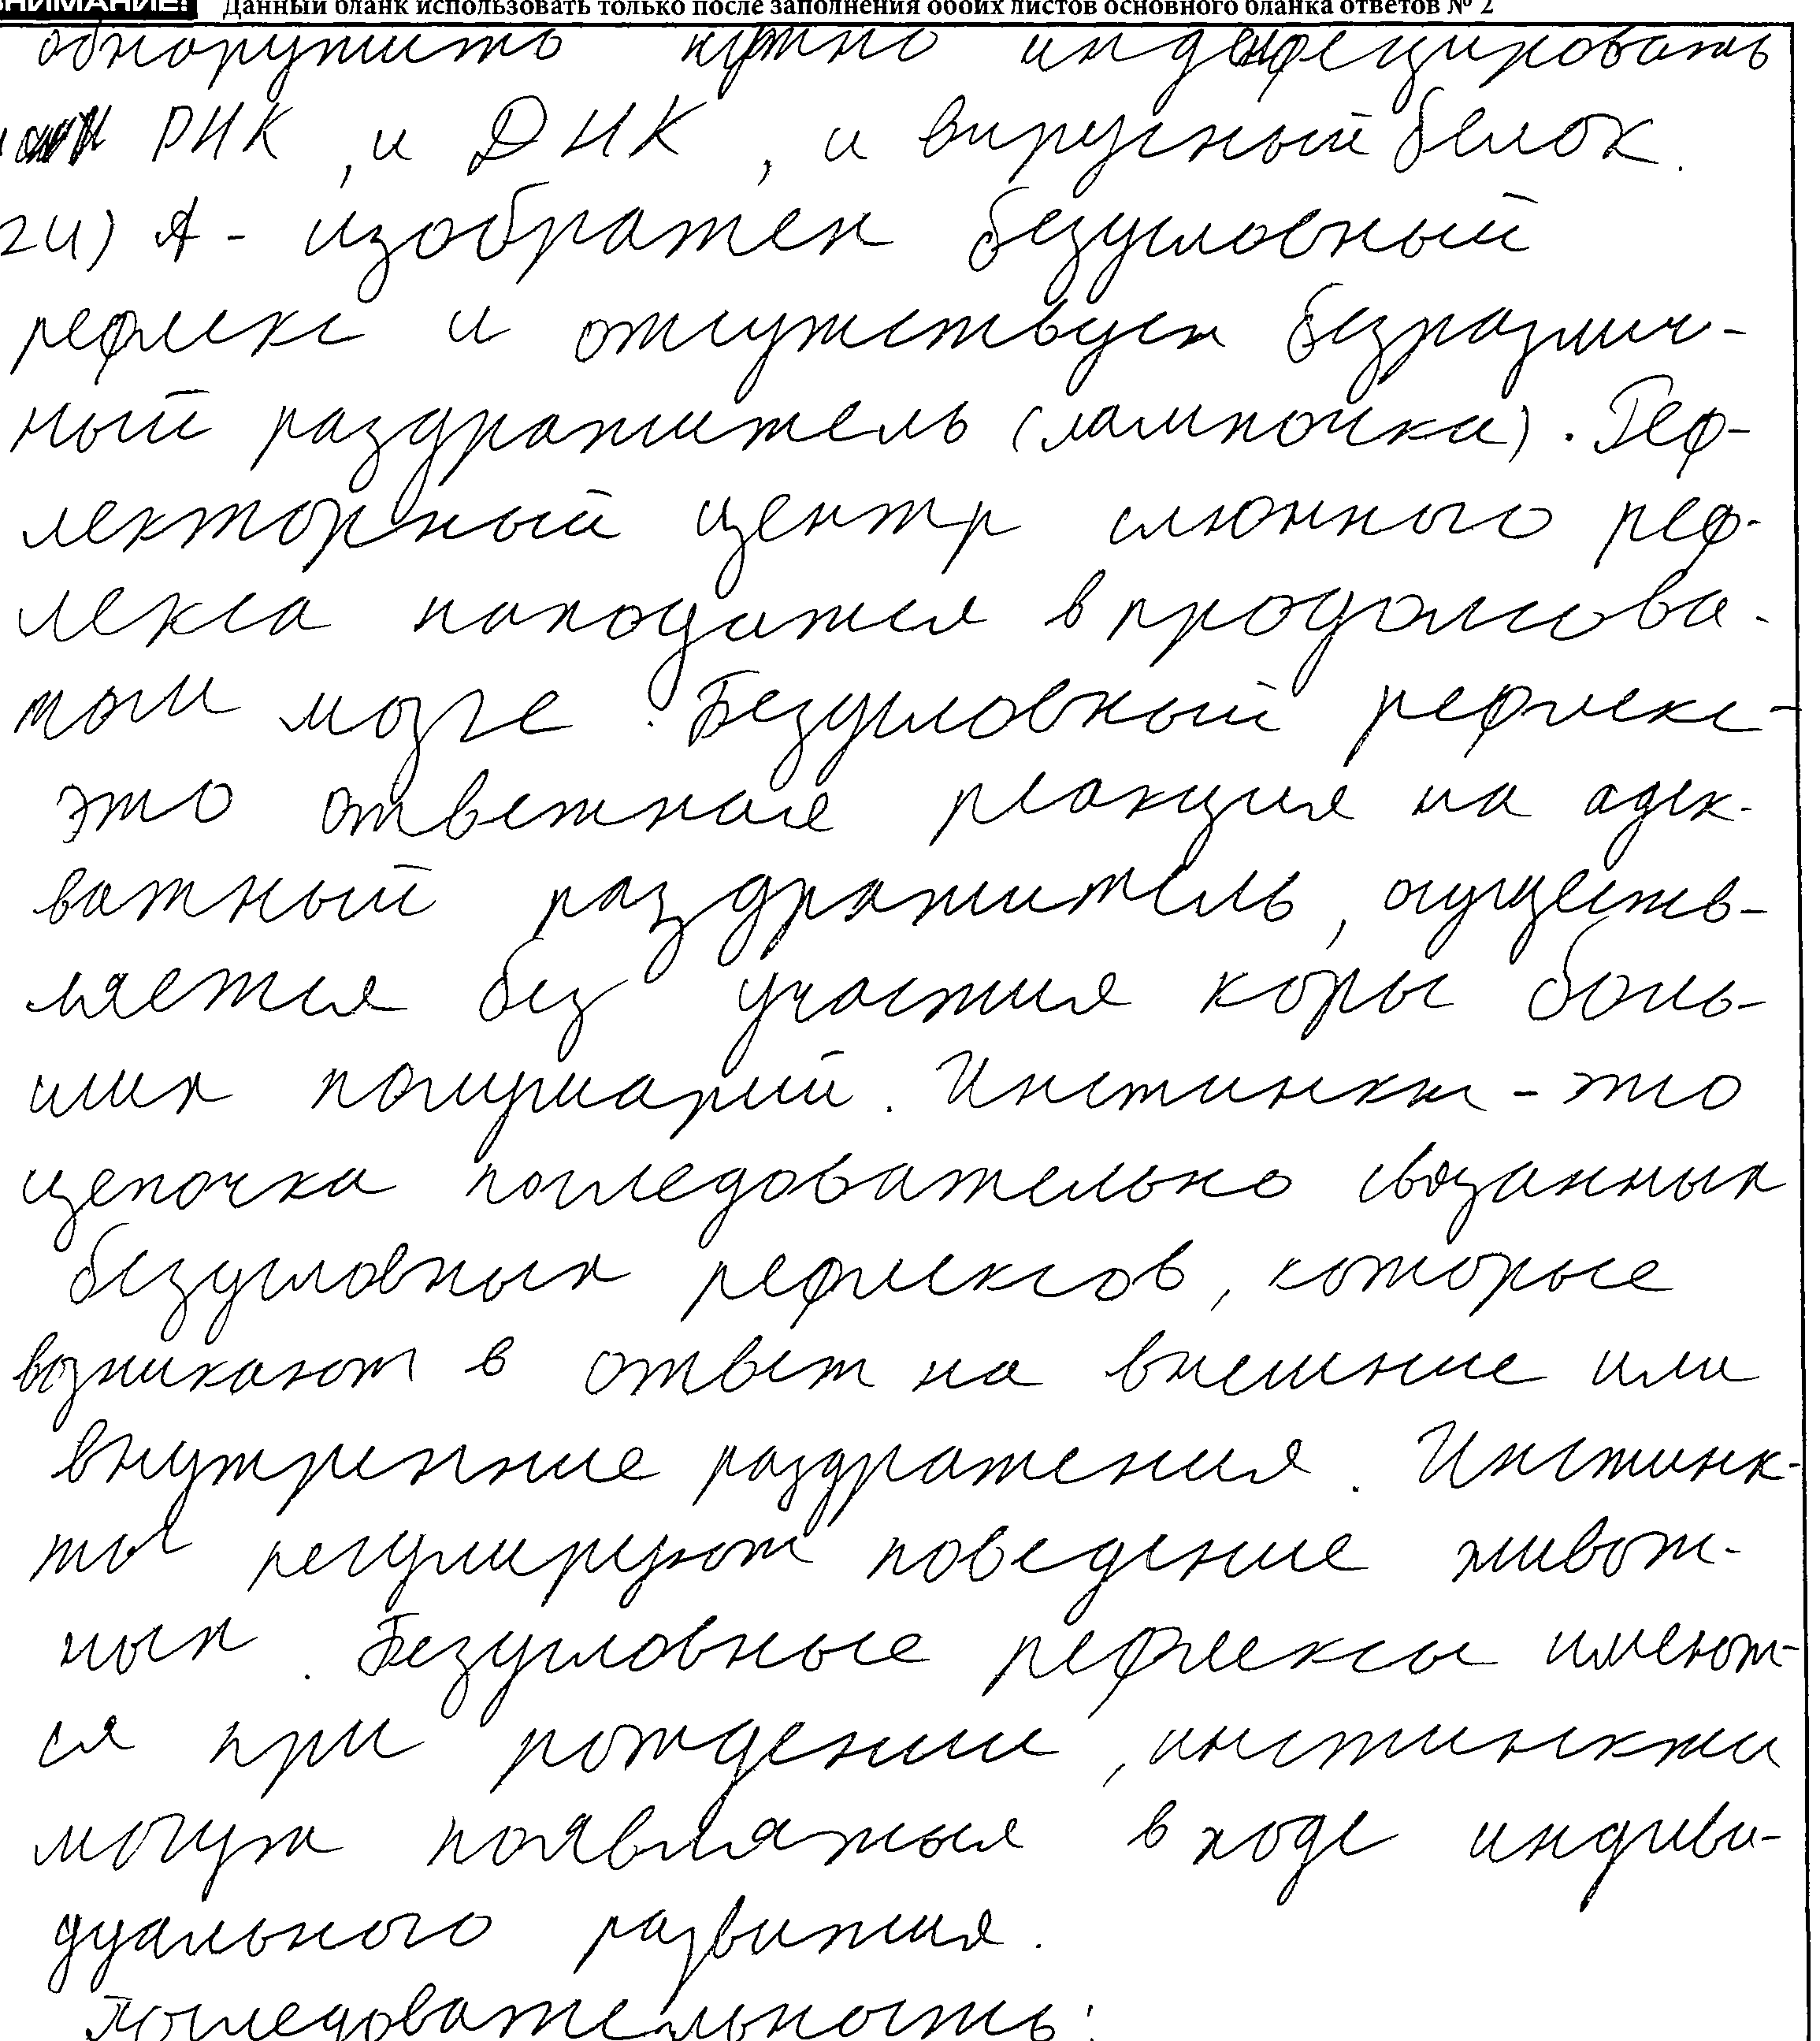 ВНИМАНИЕ! Данный бланк использовать только после заполнения обоих листов основного бланка ответов № 2
обнаружить нужно индефецировать
РНК, и ДНК, и вирусный белок.
24) А - изображен безусловный
рефлекс и отсутствует безразлич-
ный раздражитель (лампочка). Реф-
лекторный центр слюнного реф-
лекса находится в продолгова-
том мозге. Безусловный рефлекс -
это ответная реакция на адек-
ватный раздражитель, осуществ-
ляется без участия коры боль-
ших полушарий. Инстинкт - это
цепочка последовательно связанных
безусловных рефлексов, которые
возникают в ответ на внешние или
внутренние раздражения. Инстинк-
ты регулируют поведение живот-
ных. Безусловные рефлексы имеют-
ся при рождении, инстинкты
могут появляться в ходе индиви-
дуального развития.
Последовательность: